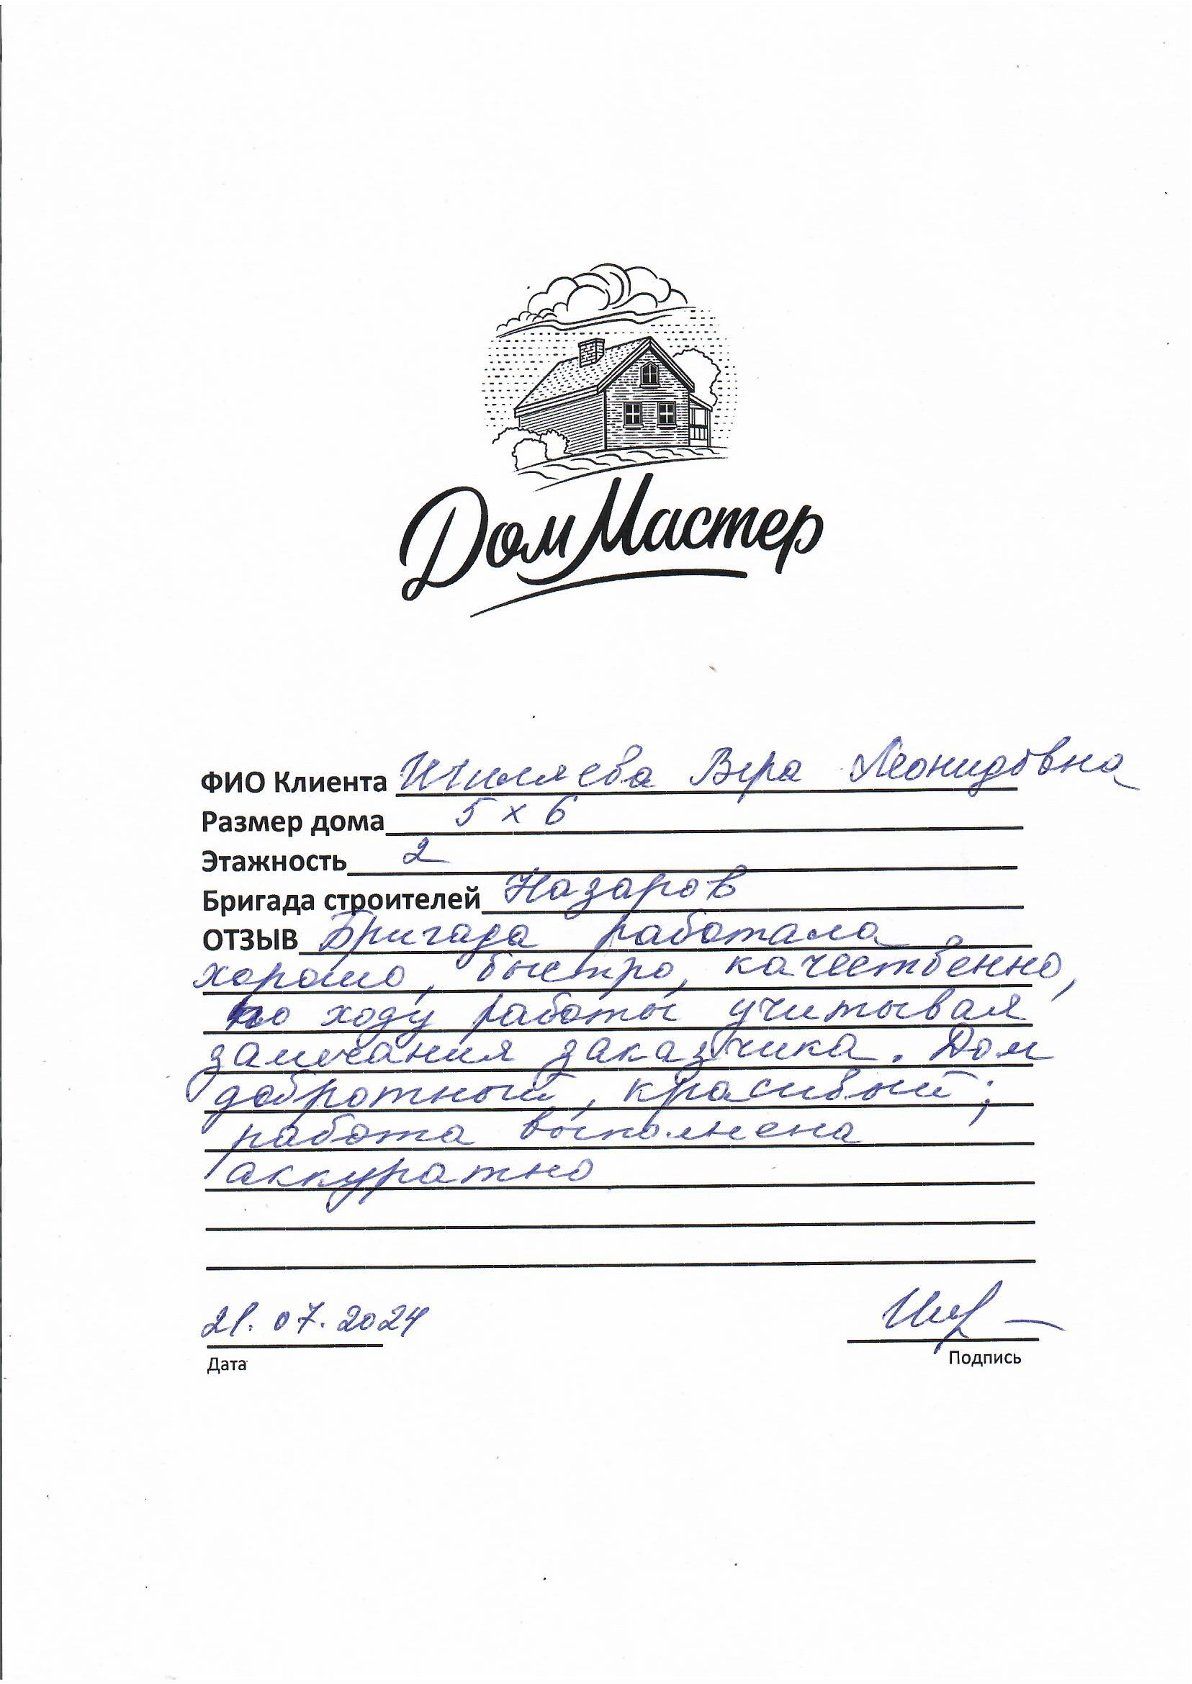 Дом Мастер
ФИО Клиента Шиляева Вера Леонидовна
Размер дома 5 х 6
Этажность 2
Бригада строителей Назаров
ОТЗЫВ Бригада работала
хорошо, быстро, качественно,
по ходу работы учитывая
замечания заказчика. Дом
добротный, красивый;
работа выполнена
аккуратно
21.07.2024
Дата
Подпись